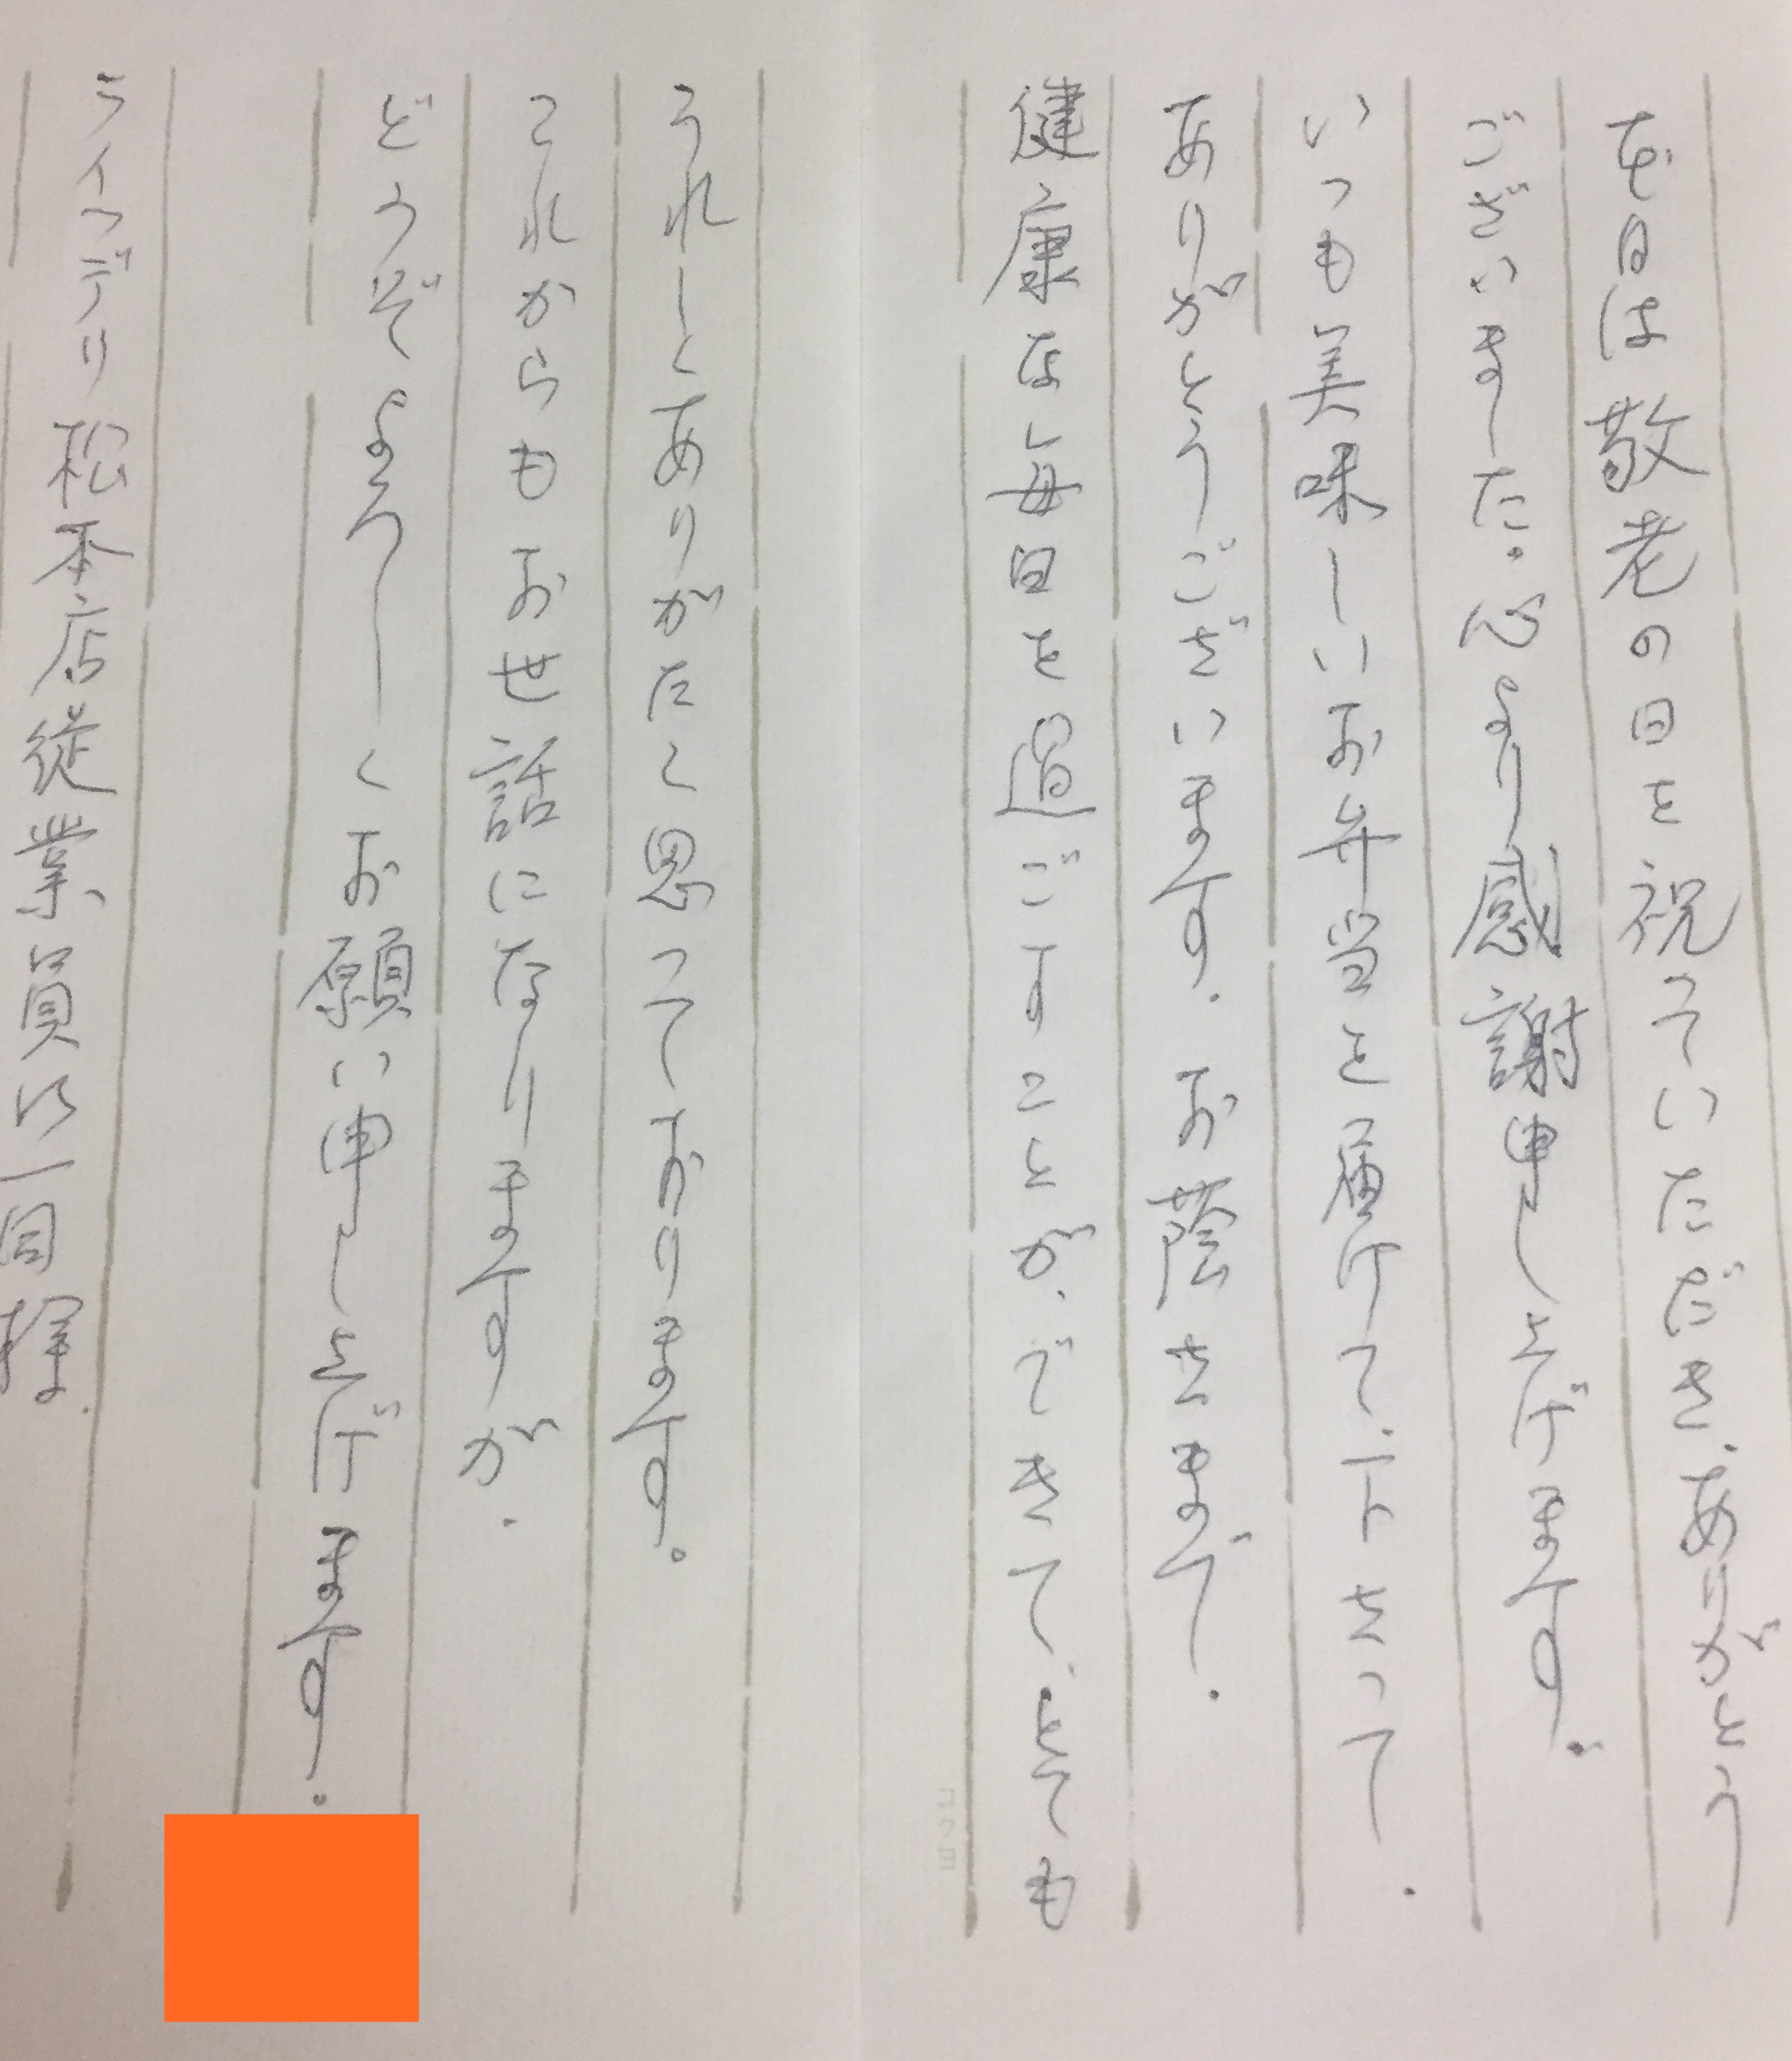 本日は敬老の日を祝っていただき、ありがとう
ございました。心より感謝申し上げます。
いつも美味しいお弁当を届けて、下さって、
ありがとうございます。お蔭さまで、
健康な毎日を過ごすことが、できて、とても
うれしくありがたく思っております。
これからもお世話になりますが、
どうぞよろしくお願い申し上げます。
ライフデリ松本店従業員ご一同様
コクヨ